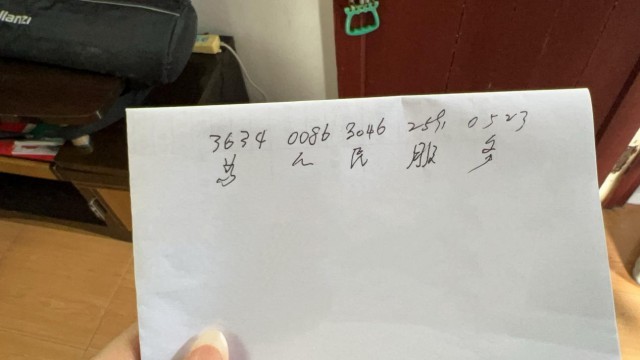 3634 0086 3046 2591 0523
为 人 民 服 务